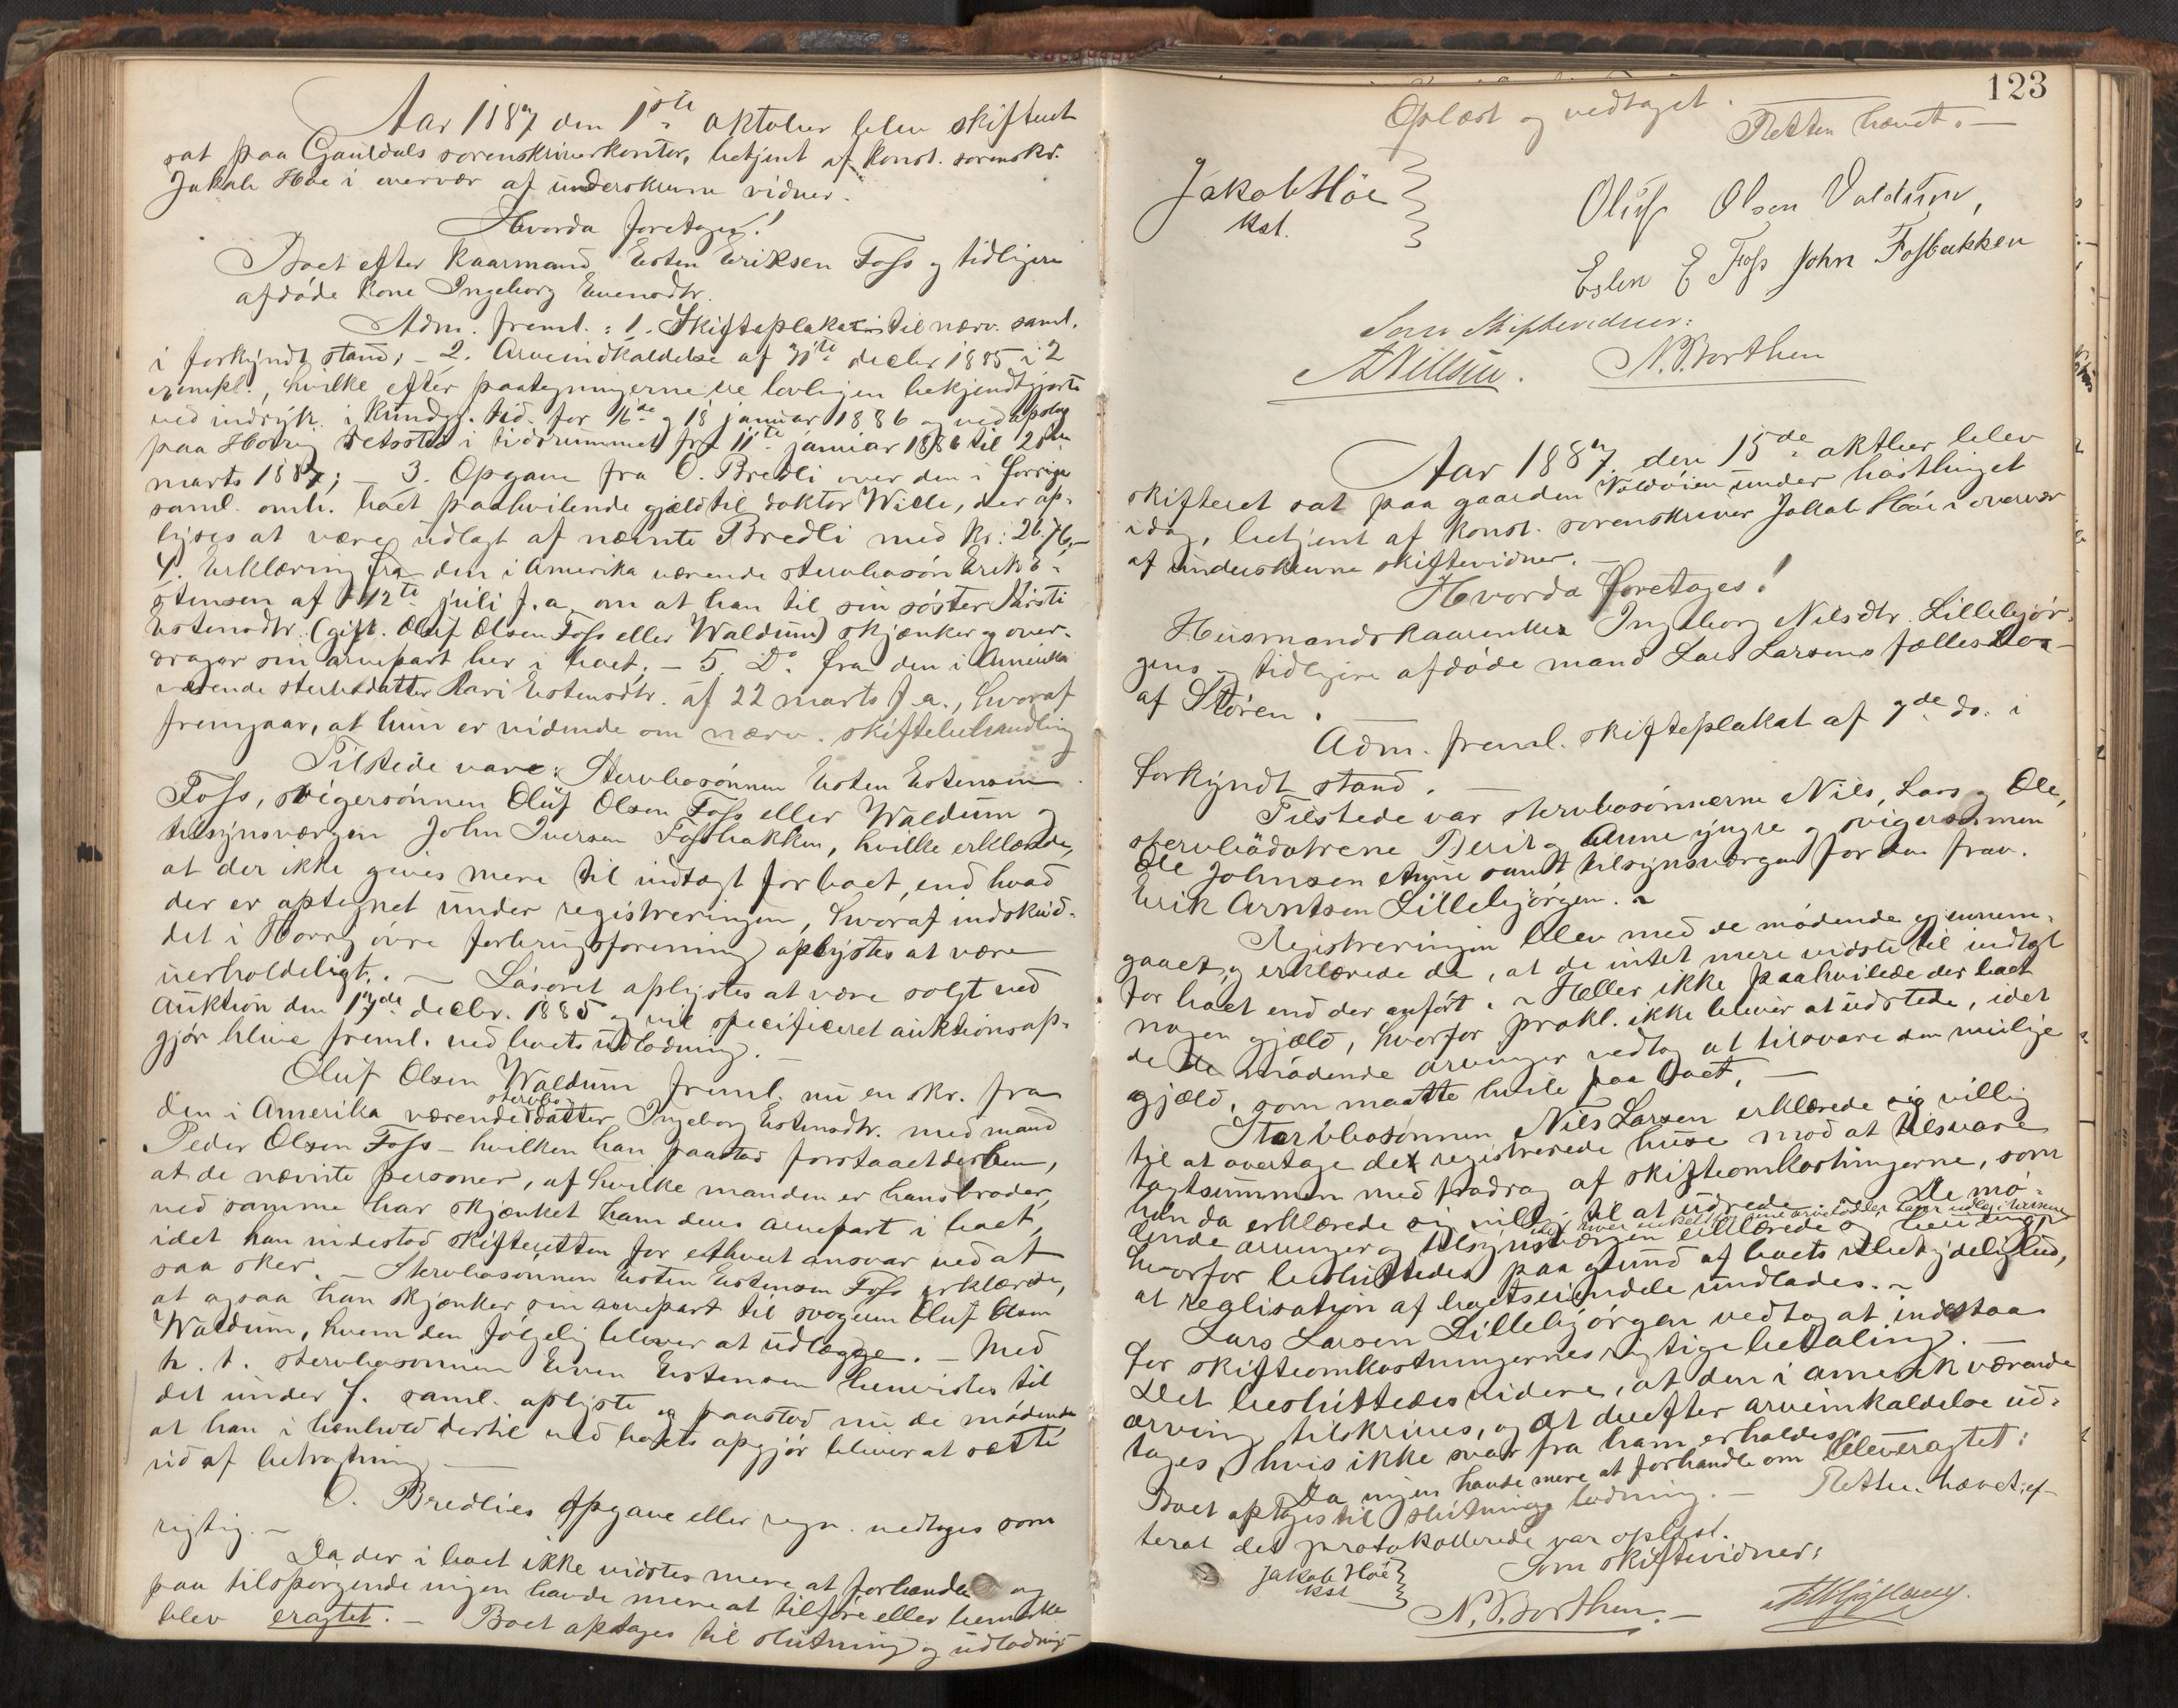 Aar 1887 den 1ste oktober blev skifteret
sat paa Gauldals sorenskriverkontor, betjent af konst. sorenskr.
Jakob Høe i overvær af underskrevne vidner.
Hvorda foretages!
Boet efter kaarmand Esten Eriksen Foss og tidligere
afdøde kone Ingeborg Evensdtr.
Adm. freml.: 1. Skifteplakat til nærv. saml.
i forkyndt stand; - 2. Arveindkaldelse af decbr 1885 i 2
exempl., hvilke efter paategningerne ere lovligen bekjendtgjorte
ved indryk. i Kundgj. tid. for 16de og 18 januar 1886 og ved opslag
paa Horrig retssted i tidsrummet fra 11te januar 1886 til
marts 1887; - 3. Opgave fra O. Bredli over den i forrige
saml. omh. boet paahvilende gjæld til doktor Wille, der op-
lyses at være udlagt af nævnte Bredli med kr: 26.76, -
4. Erklæring fra den i Amerika værende stervbosøn Erik E-
stensen af 12te juli d. a. om at han til sin søster Kirsti
Estensdtr. (gift. Oluf Olsen Foss eller Waldum) skjænker og over-
drager sin arvepart her i boet. - 5. Do. fra den i Amerika
værende stervbdatter Kari Estensdtr. af 22 marts d. a., hvoraf
fremgaar, at hun er vidende om nærv. skiftebehandling
Tilstede vare: Stervbosønnen Esten Estensen
Foss, svigersønnen Oluf Olsen Foss eller Waldum og
tilsynsværgen John Iversen Fossbakken, hvilke erklærede,
at der ikke gives mere til indtægt for boet, end hvad
der er optegnet under registreringen, hvoraf indskud-
det i Horrig øvre forbrugsforening oplystes at være
uerholdeligt. - Løsøret oplystes at være solgt ved
auktion den 17de decbr. 1885 og vil specificeret auktionsop-
gjør blive freml. ved boets udlodning. -
Oluf Olsen Waldum freml. nu en skr. fra
den i Amerika værende stervbodatter Ingeborg Estensdtr. med mand
Peder Olsen Foss - hvilken han paastod forstaaet derhen,
at de nævnte personer, af hvilke manden er hans broder,
ved samme har skjænket ham deres arvepart i boet,
idet han indestod skifteretten for ethvert ansvar ved at
saa sker. - Stervbosønnen Esten Estensen Foss erklærede,
at ogsaa han skjænker sin arvepart til svogeren Oluf Olsen
Waldum, hvem den følgelig bliver at udlægge. - Med
h. t. stervbosønnen Even Estensen henvistes til
det under f. saml. oplyste og paastod nu de mødende
at han i henhold dertil ved boets opgjør bliver at sætte
ud af betragtning -
O. Bredlies opgave eller regn. vedtoges som
rigtig. -
Da der i boet ikke vidstes mere at forhandle og
paa tilspørgende ingen havde mere at tilføre eller bemærke
blev eragtet. - Boet optages til slutning og udlodning
123
Oplæst og vedtaget.
Retten hævet. -
Jakob Høe
kst.
Oluf Olsen Valdum,
Esten E Foss John Fossbakken
Som Skiftevidner:
N. P. Borthen
Aar 1887. den 15de oktber blev
skifteret sat paa gaarden Voldøien under høstthinget
idag, betjent af konst. sorenskriver Jakob Høe i overvær
af underskrevne skiftevidner. -
Hvorda foretages!
Husmandskaarenke Ingeborg Nilsdtr. Lillebjør-
gens og tidligere afdøde mand Lars Larsens fællesbo
af Støren.
Adm. freml. skifteplakat af 7de ds. i
forkyndt stand. -
Tilstede var stervbosønnerne Nils, Lars og Ole,
stervbødøtrene Berit og Anne yngre og svigersønnen
Ole Johnsen samt tilsynsværgen for den frav.
Erik Arntsen Lillebjørgen. -
Registreringen blev med de mødende gjennem-
gaaet, og erklærede de, at de intet mere vidste til indtægt
for boet end der anført. - Heller ikke paahvilede der boet
nogen gjæld, hvorfor prokl. ikke bliver at udstede, idet
de mødende arvinger vedtog at tilsvare den mulige
gjæld, som maatte hvile paa boet. -
Stervbosønnen Nils Larsen erklærede sig villig
til at overtage det registrerede huse mod at tilsvare
taxtsummen med fradrag af skifteomkostningerne, som
han da erklærede sig villig til at udrede. De mø-
dende arvinger og tilsynsværgen erklærede sig
hvorfor besluttedes paa grund af boets ubetydelighed,
at realisation af boets eiendele undlades. -
Lars Larsen Lillebjørgen vedtog at indestaa
for skifteomkostningernes rigtige betaling. -
Det besluttedes videre, at den i amerik værende
arving tilskrives, og at derefter arveindkaldelse ud-
tages, hvis ikke svar fra ham erholdes.
Da ingen havde mere at forhandle om blev eragtet:
Boet optages til slutning lodning. - Retten hævet, ef-
terat det protokollerede var oplæst.
Jakob Høe
kst
Som skiftevidner:
N. P. Borthen. -